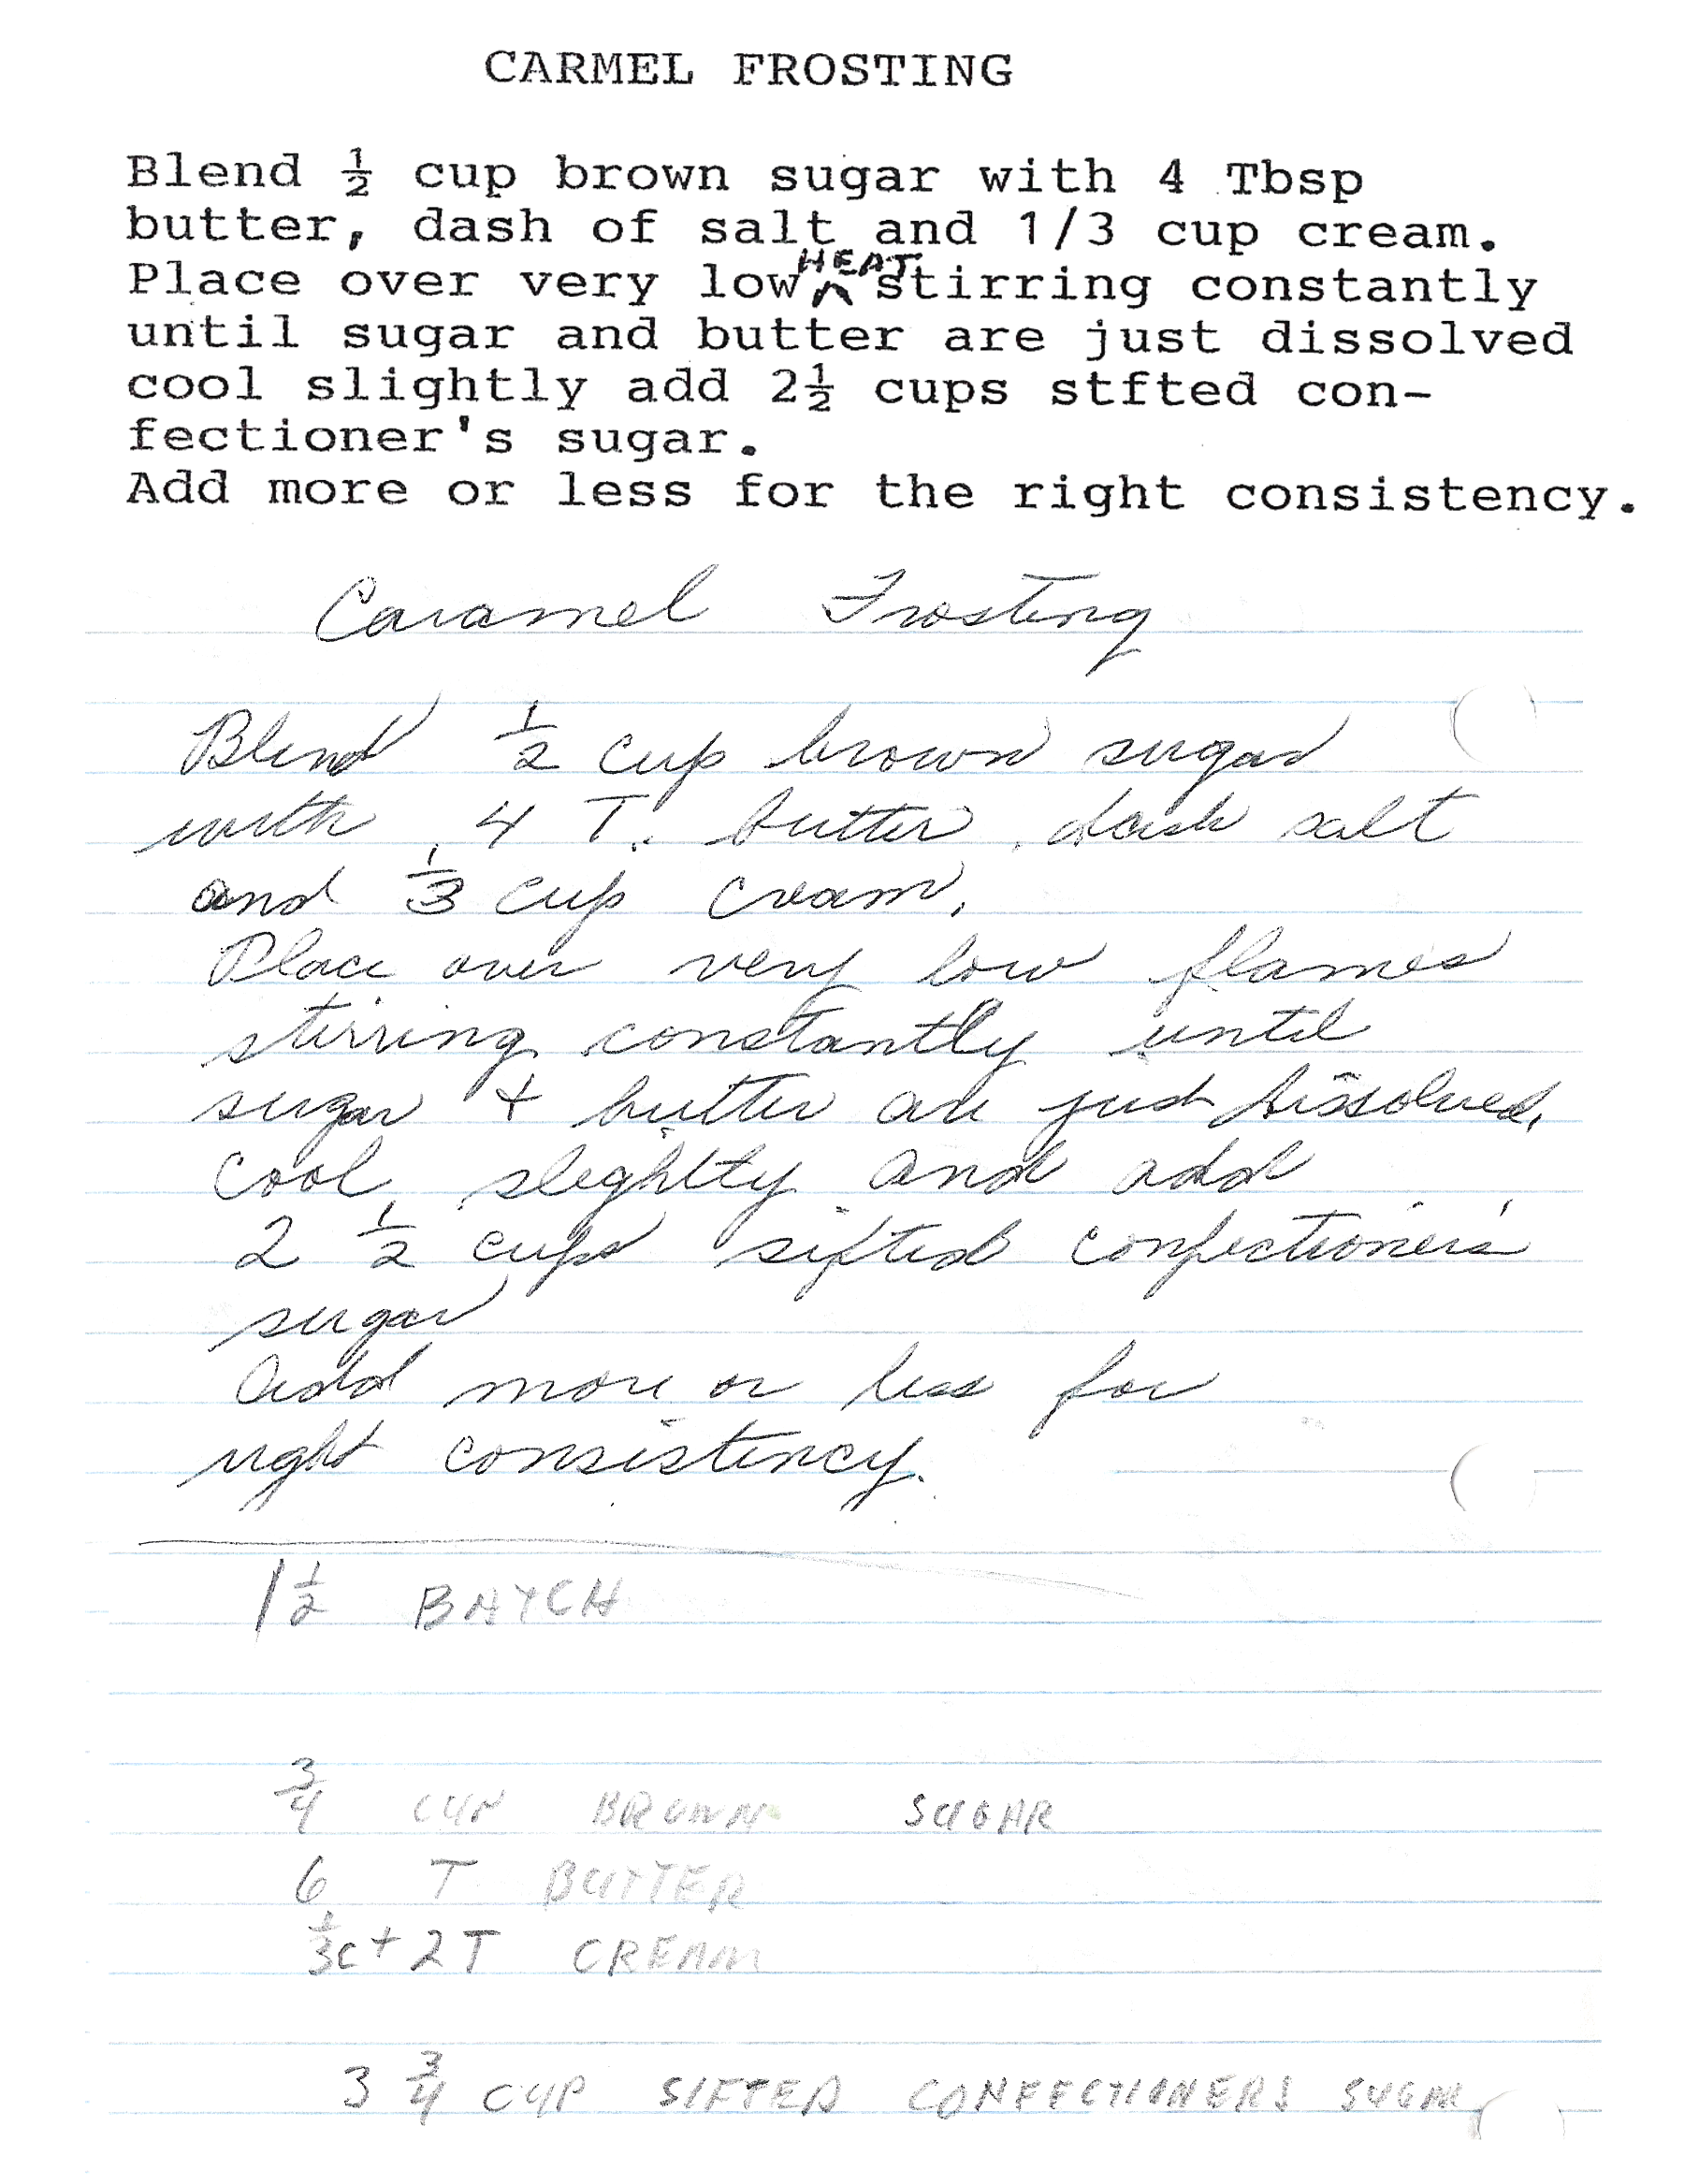 CARMEL FROSTING
Blend ½ cup brown sugar with 4 Tbsp
butter, dash of salt and 1/3 cup cream.
Place over very low HEAT stirring constantly
until sugar and butter are just dissolved
cool slightly add 2½ cups stfted con-
fectioner's sugar.
Add more or less for the right consistency.
Caramel Frosting
Blend ½ cup brown sugar
with 4 T. butter, dash salt
and ⅓ cup cream.
Place over very low flames
stirring constantly until
sugar + butter are just dissolved.
Cool slighlty and add
2 ½ cups sifted confectioners'
sugar
Add more or less for
right consistency.
1½ BATCH
¾ CUP BROWN SUGAR
6 T BUTTER
⅓c + 2T CREAM
3 ¾ CUP SIFTED CONFECTIONERS SUGAR